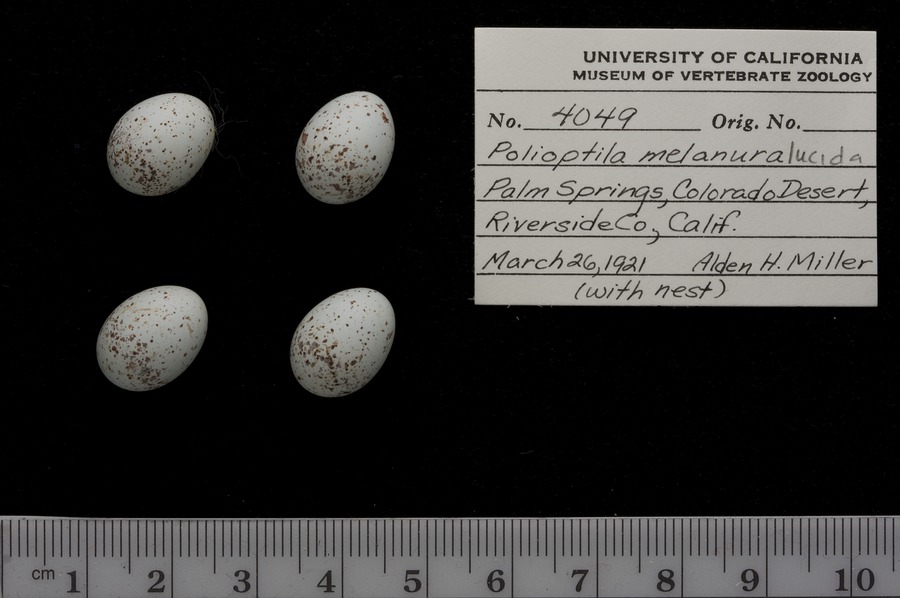 UNIVERSITY OF CALIFORNIA
MUSEUM OF VERTEBRATE ZOOLOGY
No. 4049 Orig. No.
Polioptila melanura lucida
Palm Springs, Colorado Desert,
Riverside Co, Calif.
March 26, 1921 Alden H. Miller
(with nest)
cm 1 2 3 4 5 6 7 8 9 10